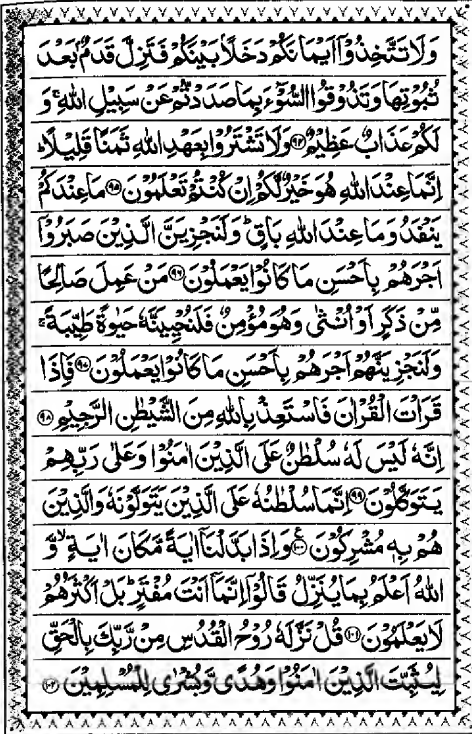 وَلَا تَتَّخِذُوْٓا اَيْمَانَكُمْ دَخَلًۢا بَيْنَكُمْ فَتَزِلَّ قَدَمٌۢ بَعْدَ
ثُبُوْتِهَا وَتَذُوْقُوا السُّوْٓءَ بِمَا صَدَدْتُّمْ عَنْ سَبِيْلِ اللّٰهِ ۚ وَ
لَكُمْ عَذَابٌ عَظِيْمٌ ﴿۹۴﴾ وَلَا تَشْتَرُوْا بِعَهْدِ اللّٰهِ ثَمَنًا قَلِيْلًا ؕ
اِنَّمَا عِنْدَ اللّٰهِ هُوَ خَيْرٌ لَّكُمْ اِنْ كُنْتُمْ تَعْلَمُوْنَ ﴿۹۵﴾ مَا عِنْدَكُمْ
يَنْفَدُ وَمَا عِنْدَ اللّٰهِ بَاقٍ ؕ وَلَنَجْزِيَنَّ الَّذِيْنَ صَبَرُوْٓا
اَجْرَهُمْ بِاَحْسَنِ مَا كَانُوْا يَعْمَلُوْنَ ﴿۹۶﴾ مَنْ عَمِلَ صَالِحًا
مِّنْ ذَكَرٍ اَوْ اُنْثٰى وَهُوَ مُؤْمِنٌ فَلَنُحْيِيَنَّهٗ حَيٰوةً طَيِّبَةً ۚ
وَلَنَجْزِيَنَّهُمْ اَجْرَهُمْ بِاَحْسَنِ مَا كَانُوْا يَعْمَلُوْنَ ﴿۹۷﴾ فَاِذَا
قَرَاْتَ الْقُرْاٰنَ فَاسْتَعِذْ بِاللّٰهِ مِنَ الشَّيْطٰنِ الرَّجِيْمِ ﴿۹۸﴾
اِنَّهٗ لَيْسَ لَهٗ سُلْطٰنٌ عَلَى الَّذِيْنَ اٰمَنُوْا وَعَلٰى رَبِّهِمْ
يَتَوَكَّلُوْنَ ﴿۹۹﴾ اِنَّمَا سُلْطٰنُهٗ عَلَى الَّذِيْنَ يَتَوَلَّوْنَهٗ وَالَّذِيْنَ
هُمْ بِهٖ مُشْرِكُوْنَ ﴿۱۰۰﴾ وَاِذَا بَدَّلْنَآ اٰيَةً مَّكَانَ اٰيَةٍ ۙ وَّ
اللّٰهُ اَعْلَمُ بِمَا يُنَزِّلُ قَالُوْٓا اِنَّمَآ اَنْتَ مُفْتَرٍ ؕ بَلْ اَكْثَرُهُمْ
لَا يَعْلَمُوْنَ ﴿۱۰۱﴾ قُلْ نَزَّلَهٗ رُوْحُ الْقُدُسِ مِنْ رَّبِّكَ بِالْحَقِّ
لِيُثَبِّتَ الَّذِيْنَ اٰمَنُوْا وَهُدًى وَّبُشْرٰى لِلْمُسْلِمِيْنَ ﴿۱۰۲﴾